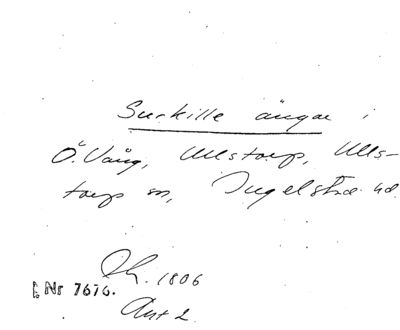 Surkille ängar i
Ö. Vång, Ullstorp, Ulls-
torp sn, Ingelstad hd.
1806
Nr 7676.
Akt 2.